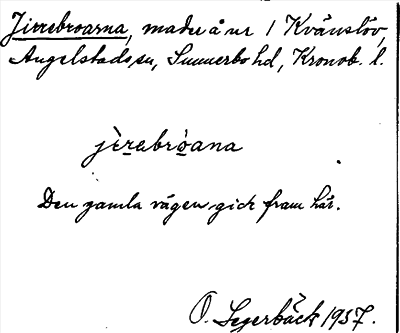 Jirrebroarna, mader å nr 1 Kvänslöv,
Angelstads sn, Sunnerbo hd, Kronob. l.
jìrebròana
Den gamla vägen gick fram här.
O. Segerbäck 1937.